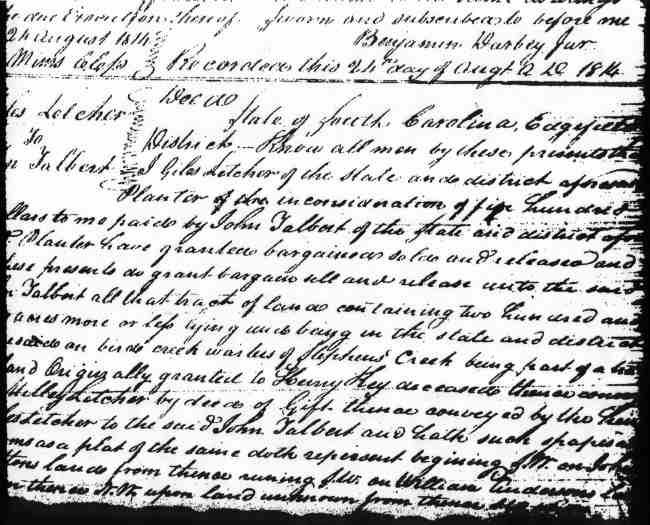 due Execution thereof Sworn and subscribed to before me
24 August 1814
Benjamin Darbey Jur
Mims Clefs
Recorded this 24th day of Augt A D 1814
Deed
Letcher
to
Talbert
State of South Carolina, Edgefield
District Know all men by these presents that
I Giles Letcher of the state and district aforesaid
Planter for & in consideration of five hundred
llars to me paid by John Talbert of the state and district
Planter have granted bargained sold and released and
hese presents do grant bargain sell and release unto the said
n Talbert all that tract of land containing two hundred and
acres more or less lying and being in the state and district
on birds creek waters of Stephens Creek being part of a
land Originally granted to Henry Key deceased thence
Milley Letcher by deed of Gift thence conveyed by the
Letcher to the said John Talbert and hath such shape
ms as a plat of the same doth represent begining S.W. on John
ttons lands from thence runing S.W. on William
thence N.W. upon land unknown from thence